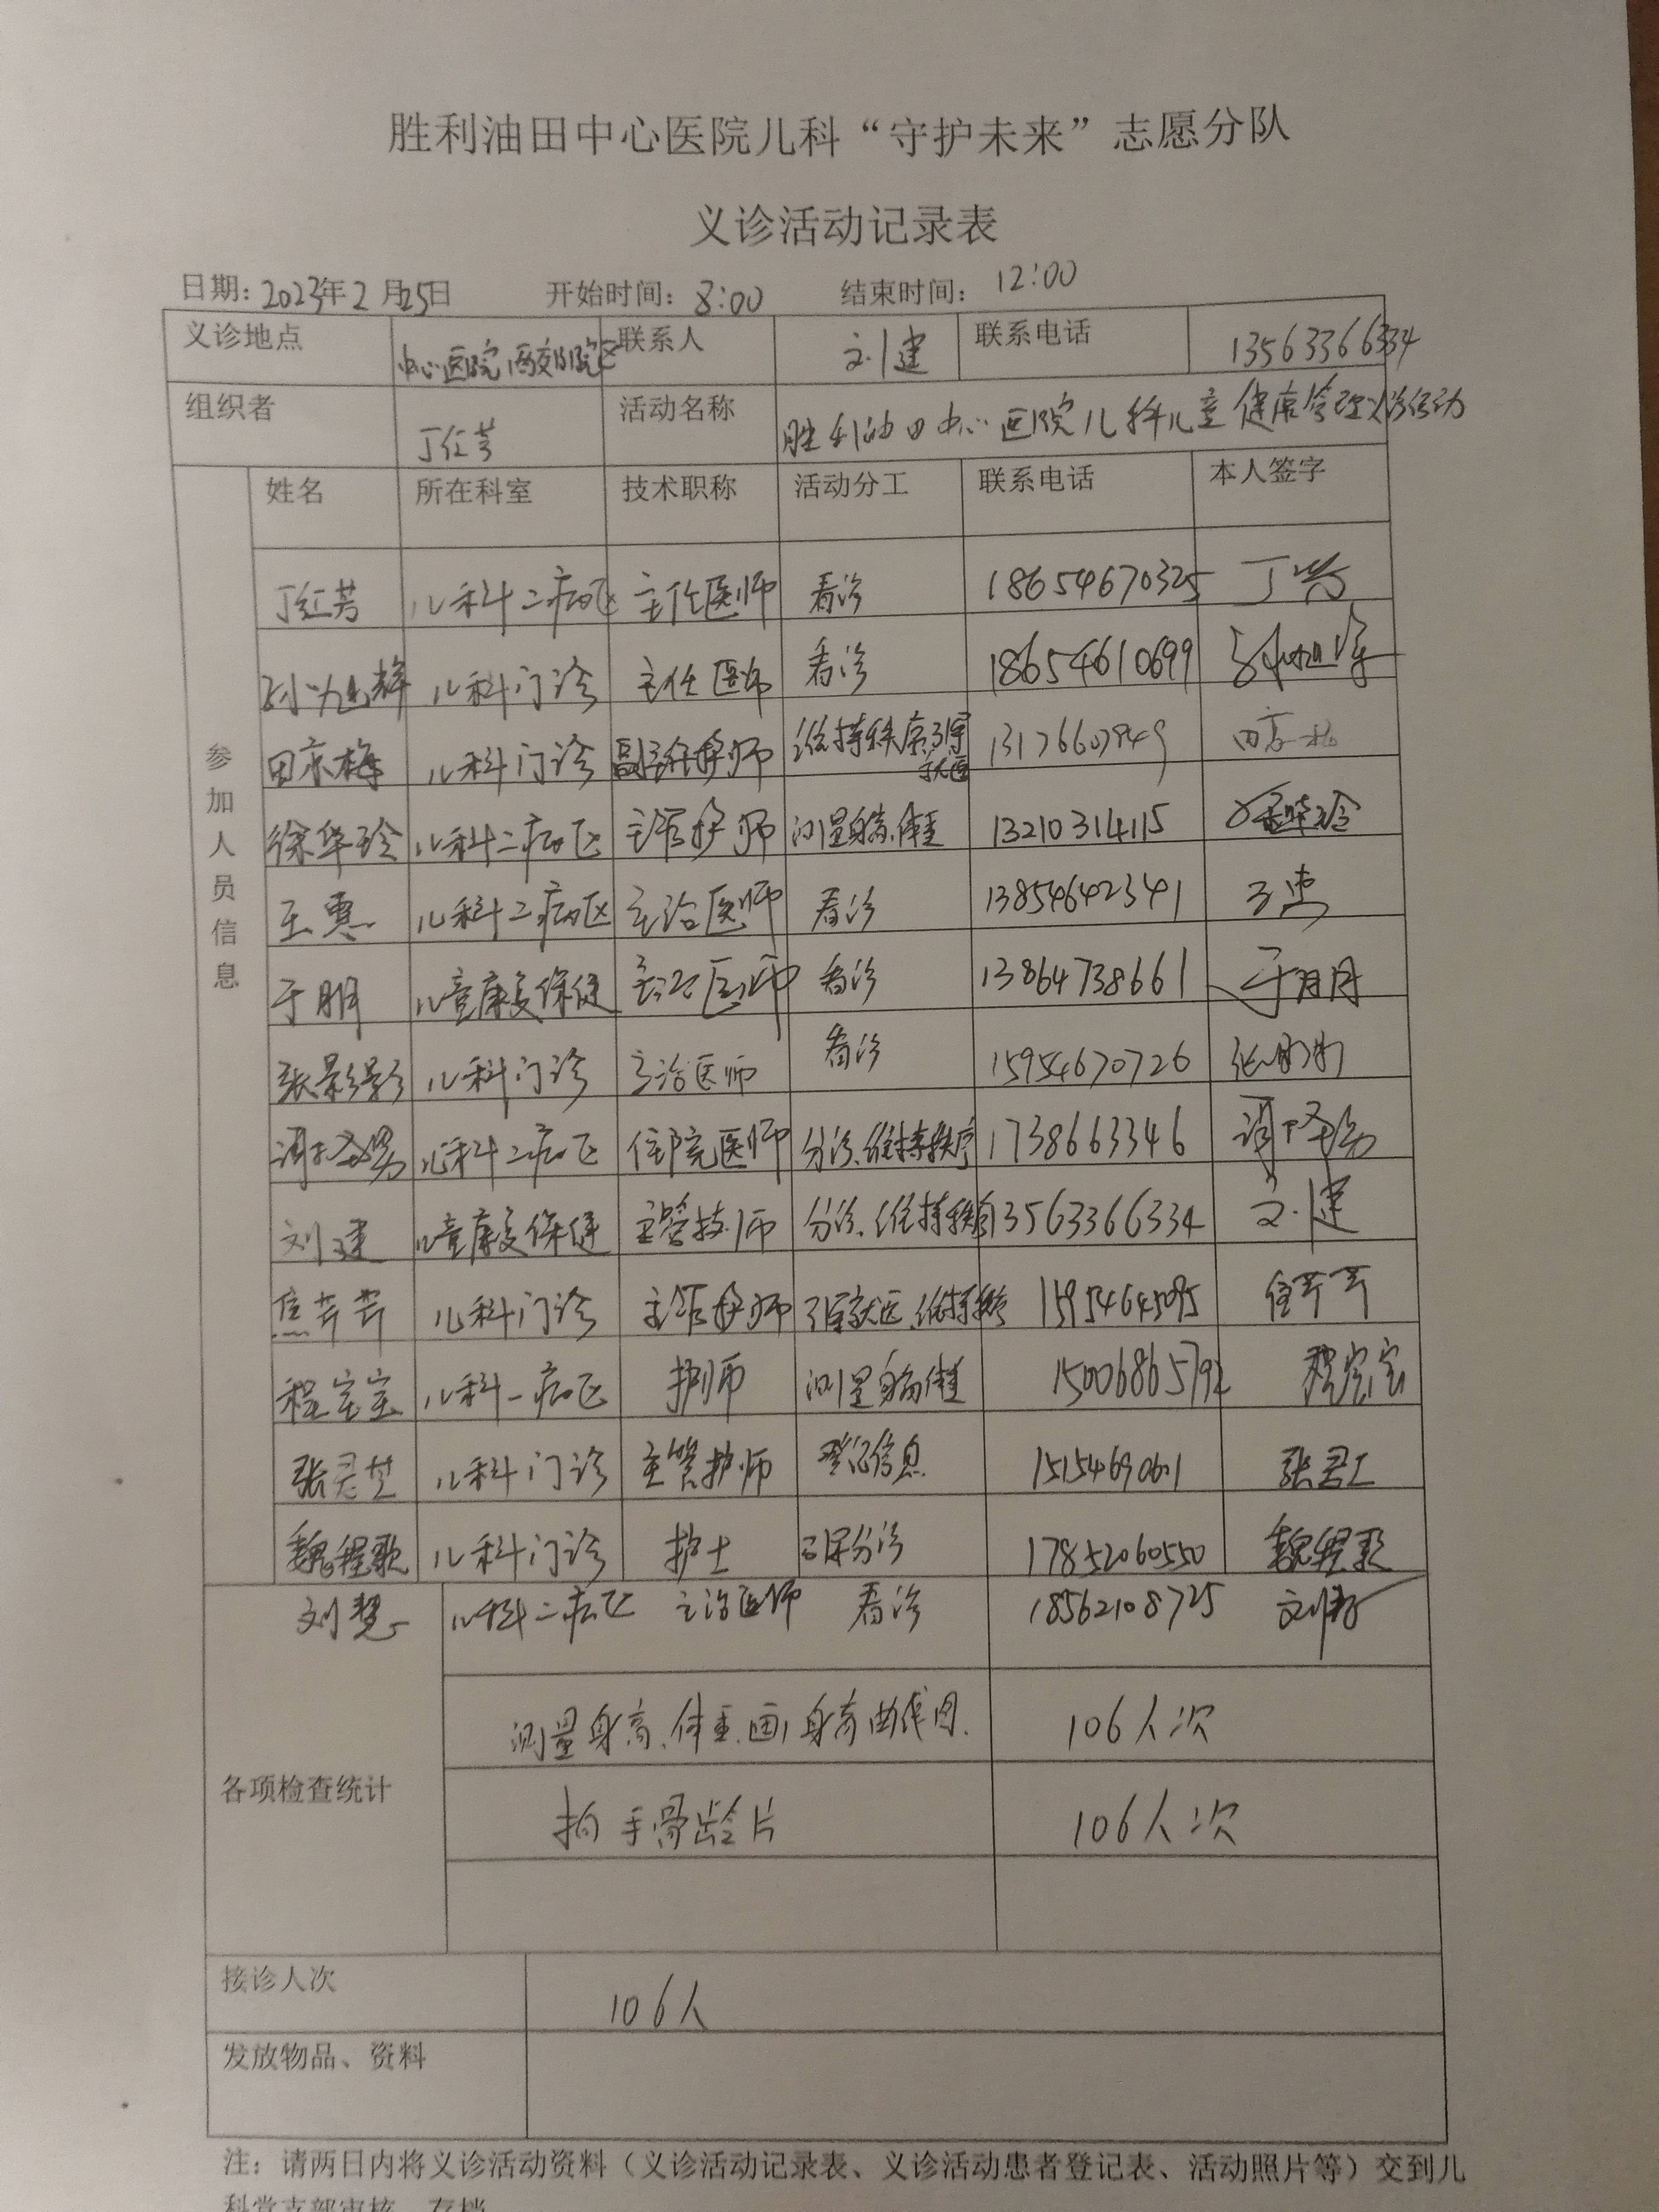 胜利油田中心医院儿科“守护未来”志愿分队
义诊活动记录表
日期：2023年2月25日 开始时间：8:00 结束时间：12:00
义诊地点 中心医院西郊院区 联系人 刘建 联系电话 13563366334
组织者 丁红芳 活动名称 胜利油田中心医院儿科儿童健康管理义诊活动
参加人员信息
姓名 所在科室 技术职称 活动分工 联系电话 本人签字
丁红芳 儿科二病区 主任医师 看诊 18654670325
儿科门诊 主任医师 看诊 18654610699
田京梅 儿科门诊 副主任护师 维持秩序引导就医
徐华玲 儿科二病区 主管护师 测量身高、体重 13210314115 徐华玲
王惠 儿科二病区 主治医师 看诊 13854642341 王惠
于朋 儿童康复保健 主治医师 看诊 13864738661 于朋
张影影 儿科门诊 主治医师 看诊 15954670726
儿科二病区 住院医师 分诊、维持秩序 1738663346
刘建 儿童康复保健 主管技师 分诊、维持秩序 13563366334 刘建
焦芹芹 儿科门诊 主管护师 引导就医、维持秩序 焦芹芹
程宝宝 儿科一病区 护师 测量身高体重 15006865792 程宝宝
儿科门诊 主管护师 登记信息
魏程歌 儿科门诊 护士 引导分诊 17852060550 魏程歌
刘慧 儿科二病区 主治医师 看诊 18562108725 刘慧
各项检查统计
测量身高、体重、画身高曲线图、 106人次
拍手骨龄片 106人次
接诊人次 106人
发放物品、资料
注：请两日内将义诊活动资料（义诊活动记录表、义诊活动患者登记表、活动照片等）交到儿
科党支部审核、存档